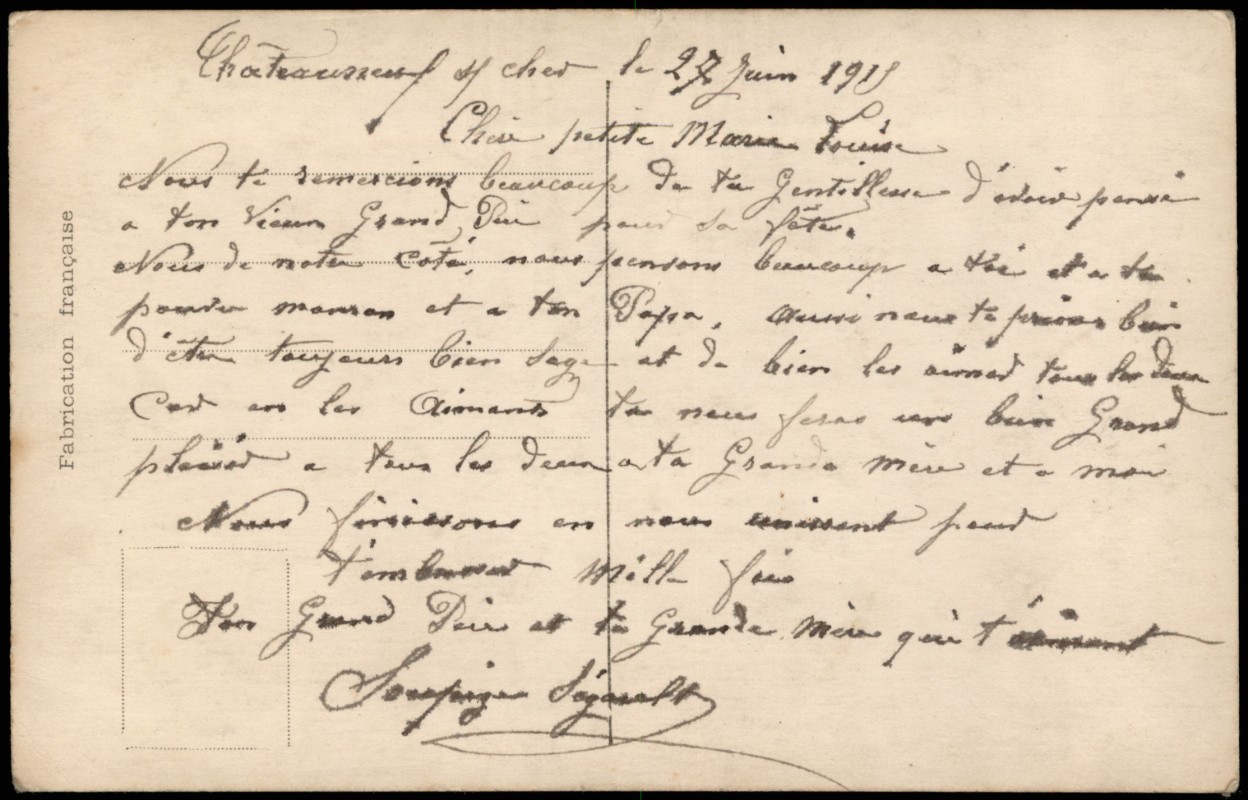 Châteauneuf s/ cher le 27 Juin 191
Chère petite Marie Louise
Nous te remercions beaucoup de ta Gentillesse d'avoir pensé
a ton Vieux Grand Père pour sa fête.
Nous de notre Côté, nous pensons beaucoup a toi et a ta
pauvre maman et a ton Papa, aussi nous te prions bien
d'être toujours bien sage et de bien les aimer tous les deux
Car en les Aimant tu nous feras un bien Grand
plaisir a tous les deux a ta Grande mère et a moi
Nous finissons en nous unissant pour
t'embrasser Mille fois
Ton Grand Père et ta Grande Mère qui t'aiment
Fabrication française